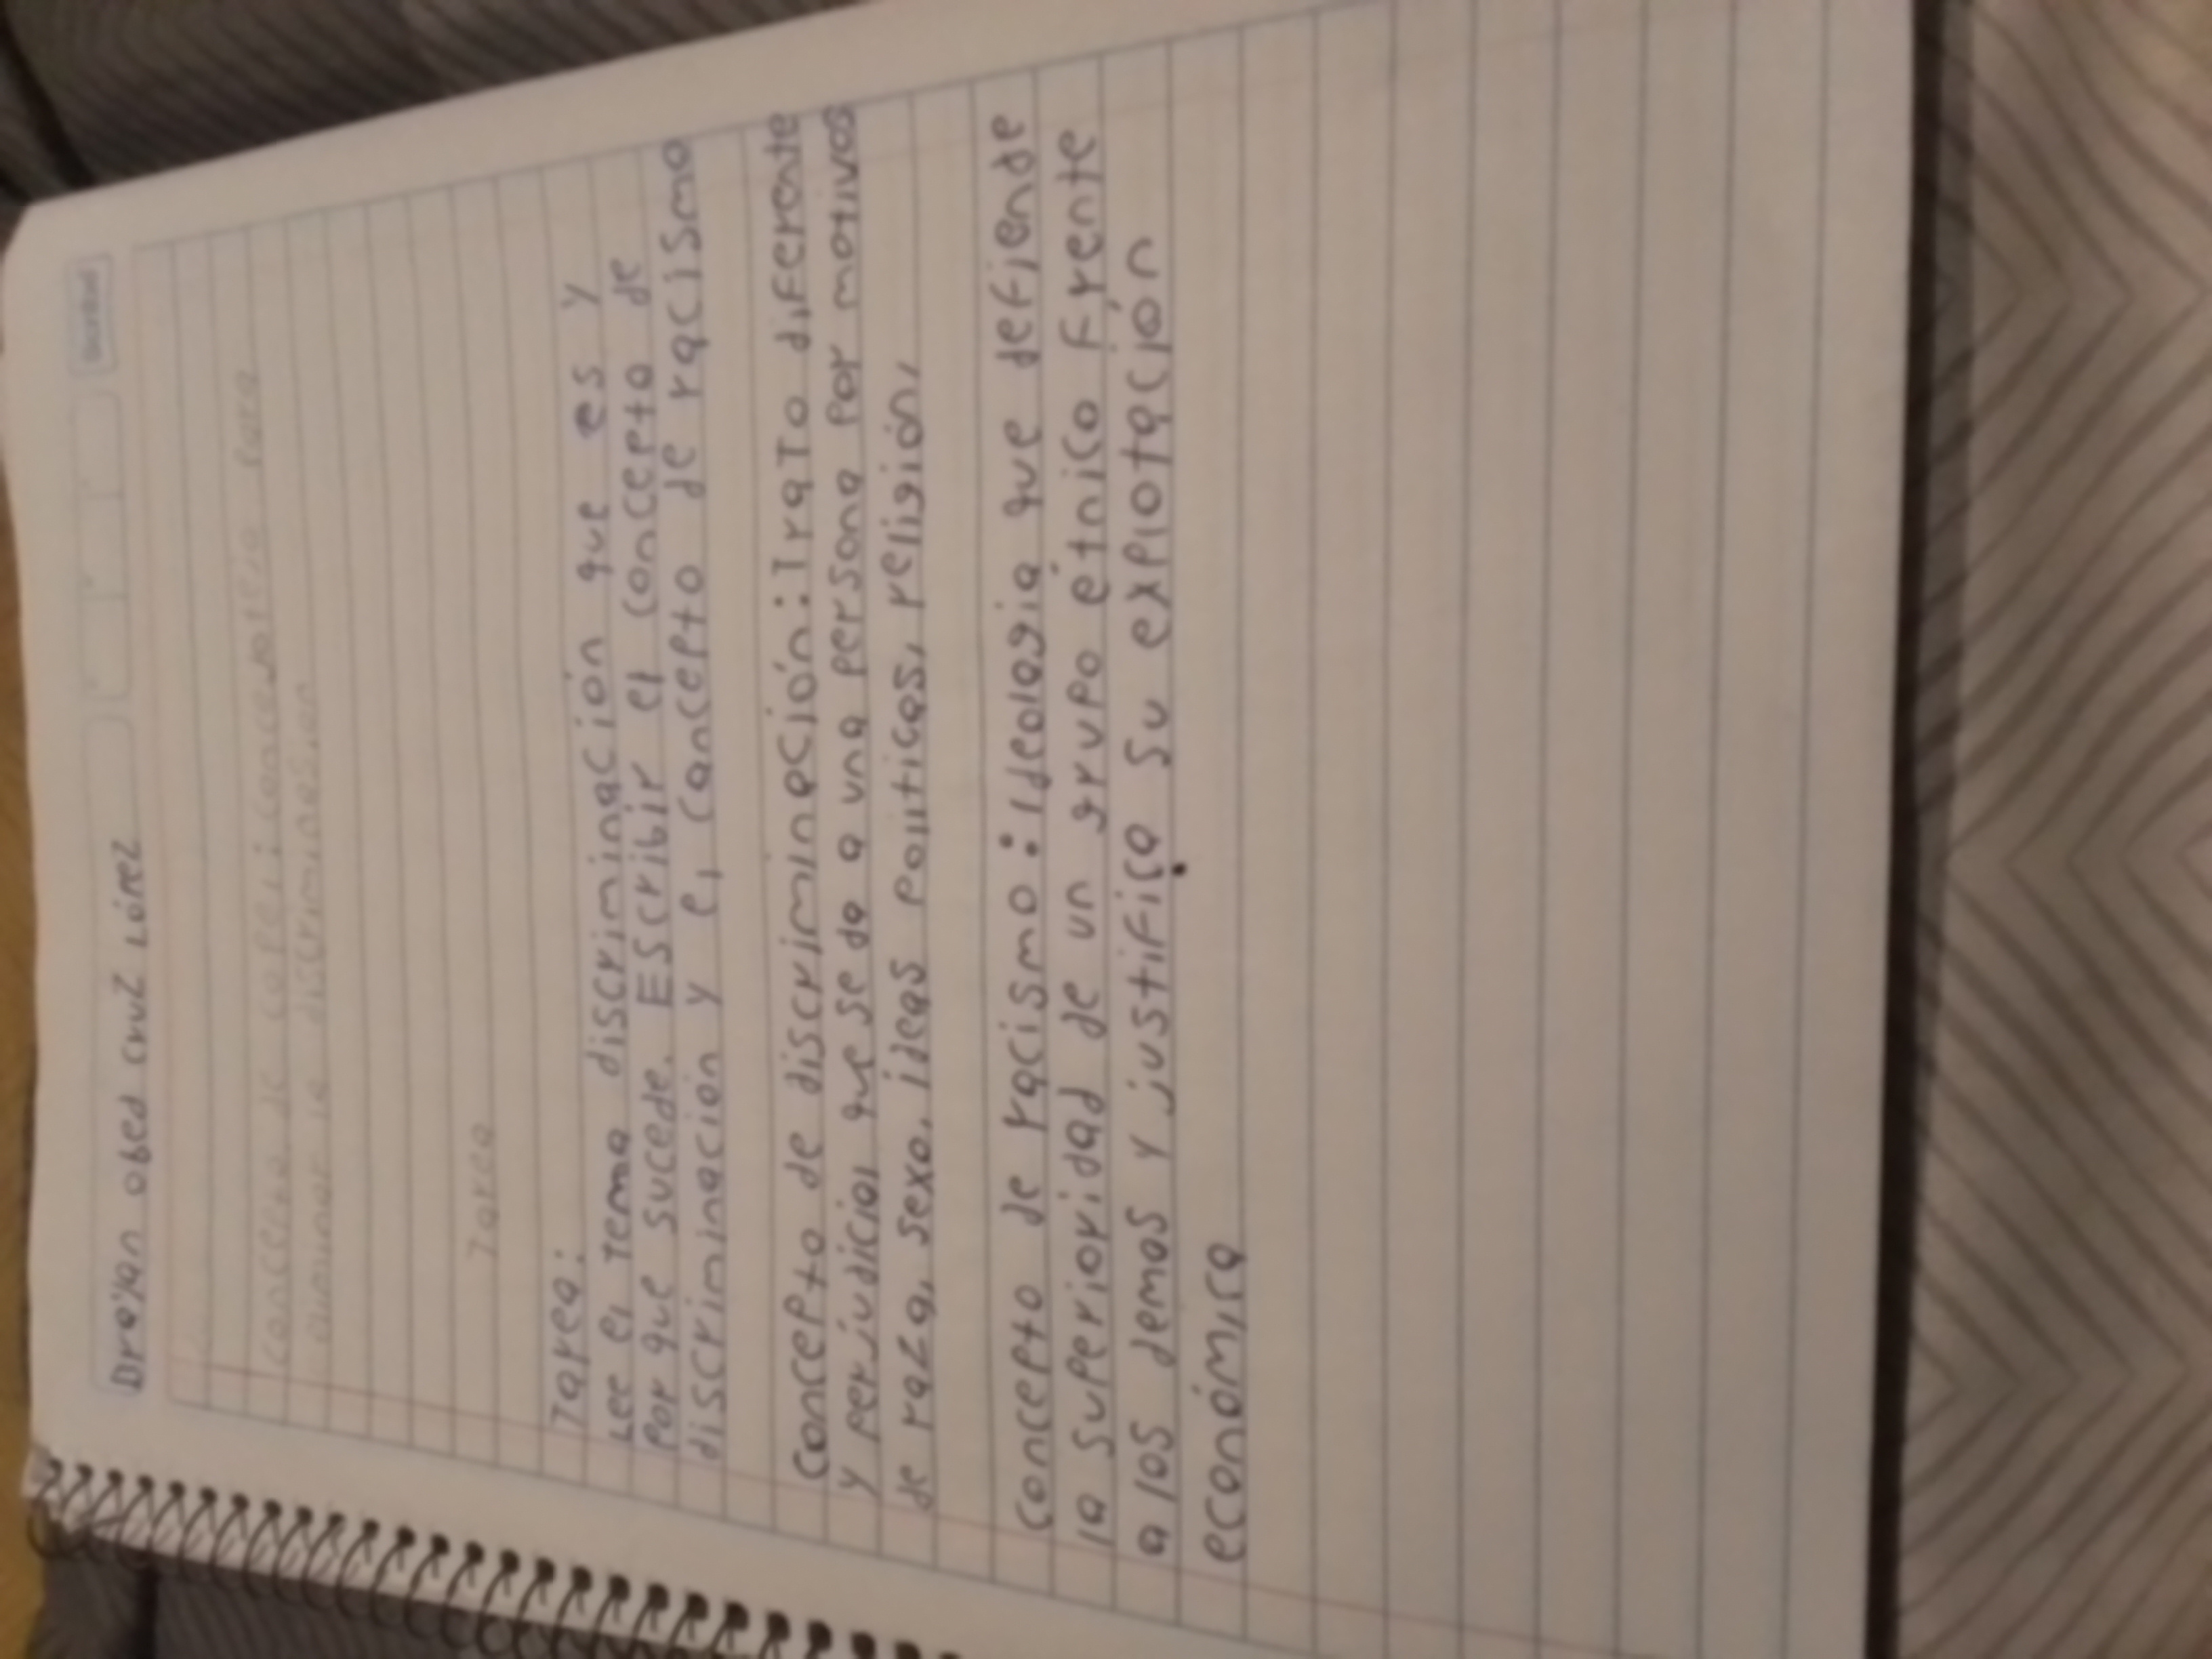 obed cruz López
Tarea
Tarea:
Lee el tema discriminación que es y
por que sucede. Escribir el concepto de
discriminación y el concepto de racismo
Concepto de discriminación: Trato diferente
y perjudicial que se da a una persona por motivos
de raza, sexo, ideas politicas, religión,
concepto de racismo: ideologia que defiende
la superioridad de un grupo étnico frente
a los demas y justifica su explotación
económica